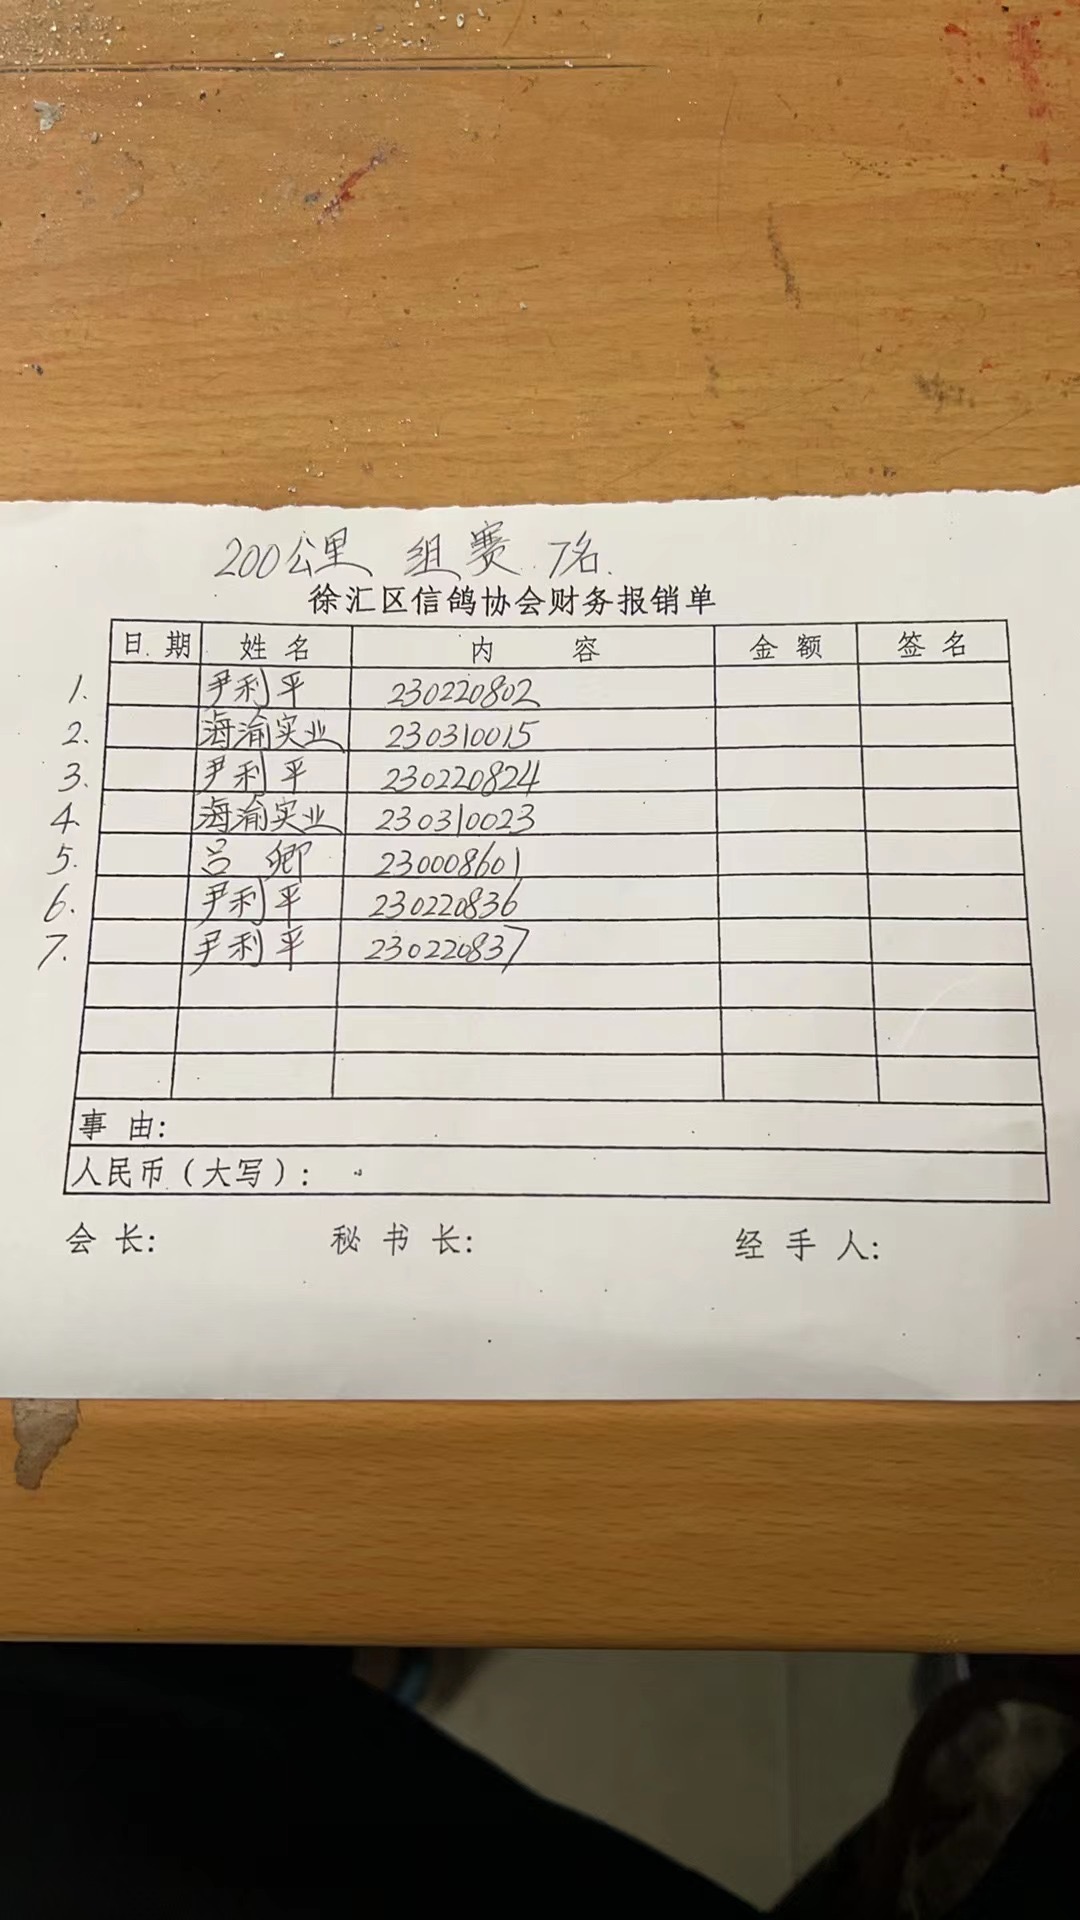 200公里 组赛 7名.
徐汇区信鸽协会财务报销单
日期 姓名 内容 金额 签名
1. 尹利平 230220802
2. 海渝实业 230310015
3. 尹利平 230220824
4. 海渝实业 230310023
5. 吕卿 230008601
6. 尹利平 230220836
7. 尹利平 230220837
事由:
人民币(大写):
会长: 秘书长: 经手人: